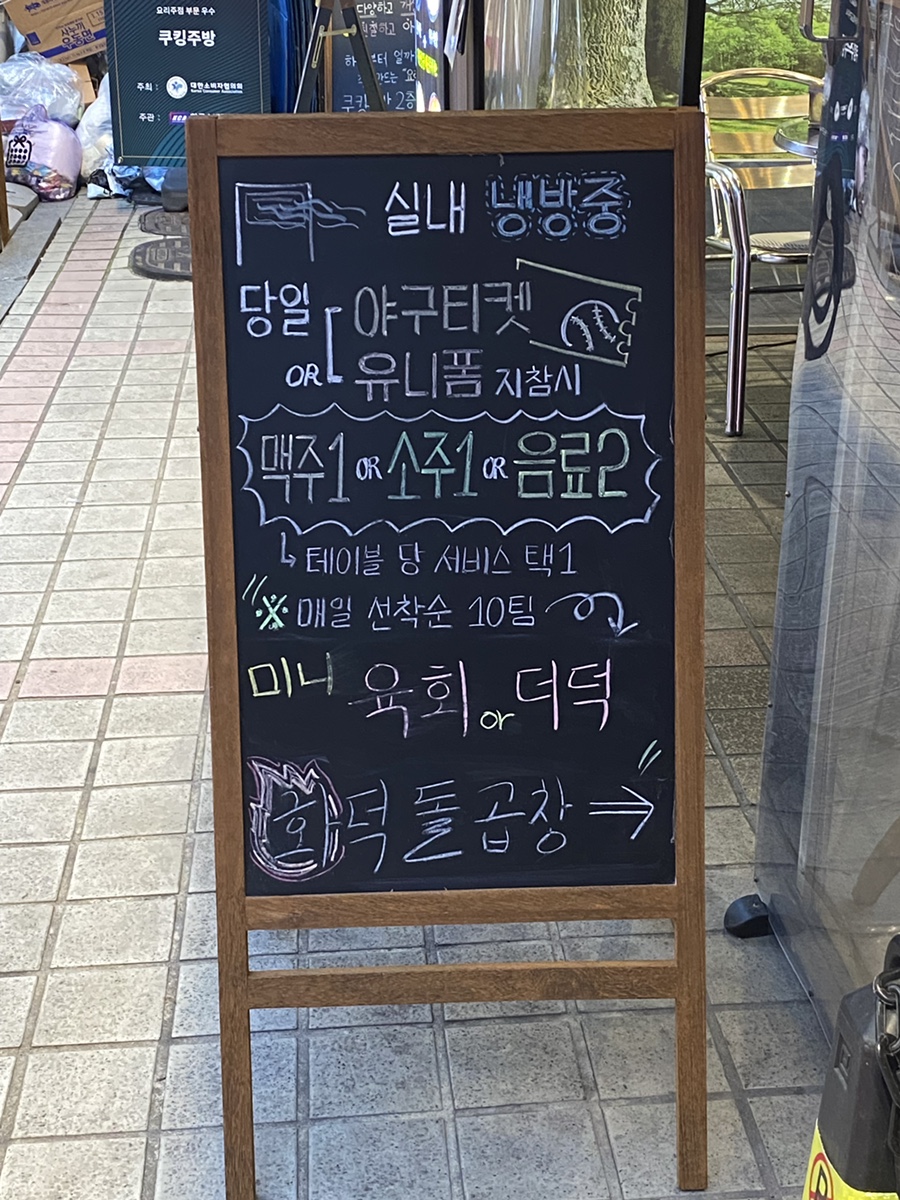 요리주점 부문 우수
쿠킹주방
주최 : 대한소비자협의회
주관 :
쿠캉
2층
실내 냉방중
당일 야구티켓
OR 유니폼 지참시
맥주1 OR 소주1 OR 음료2
테이블 당 서비스 택1
※ 매일 선착순 10팀
미니 육회 or 더덕
화덕돌곱창 →